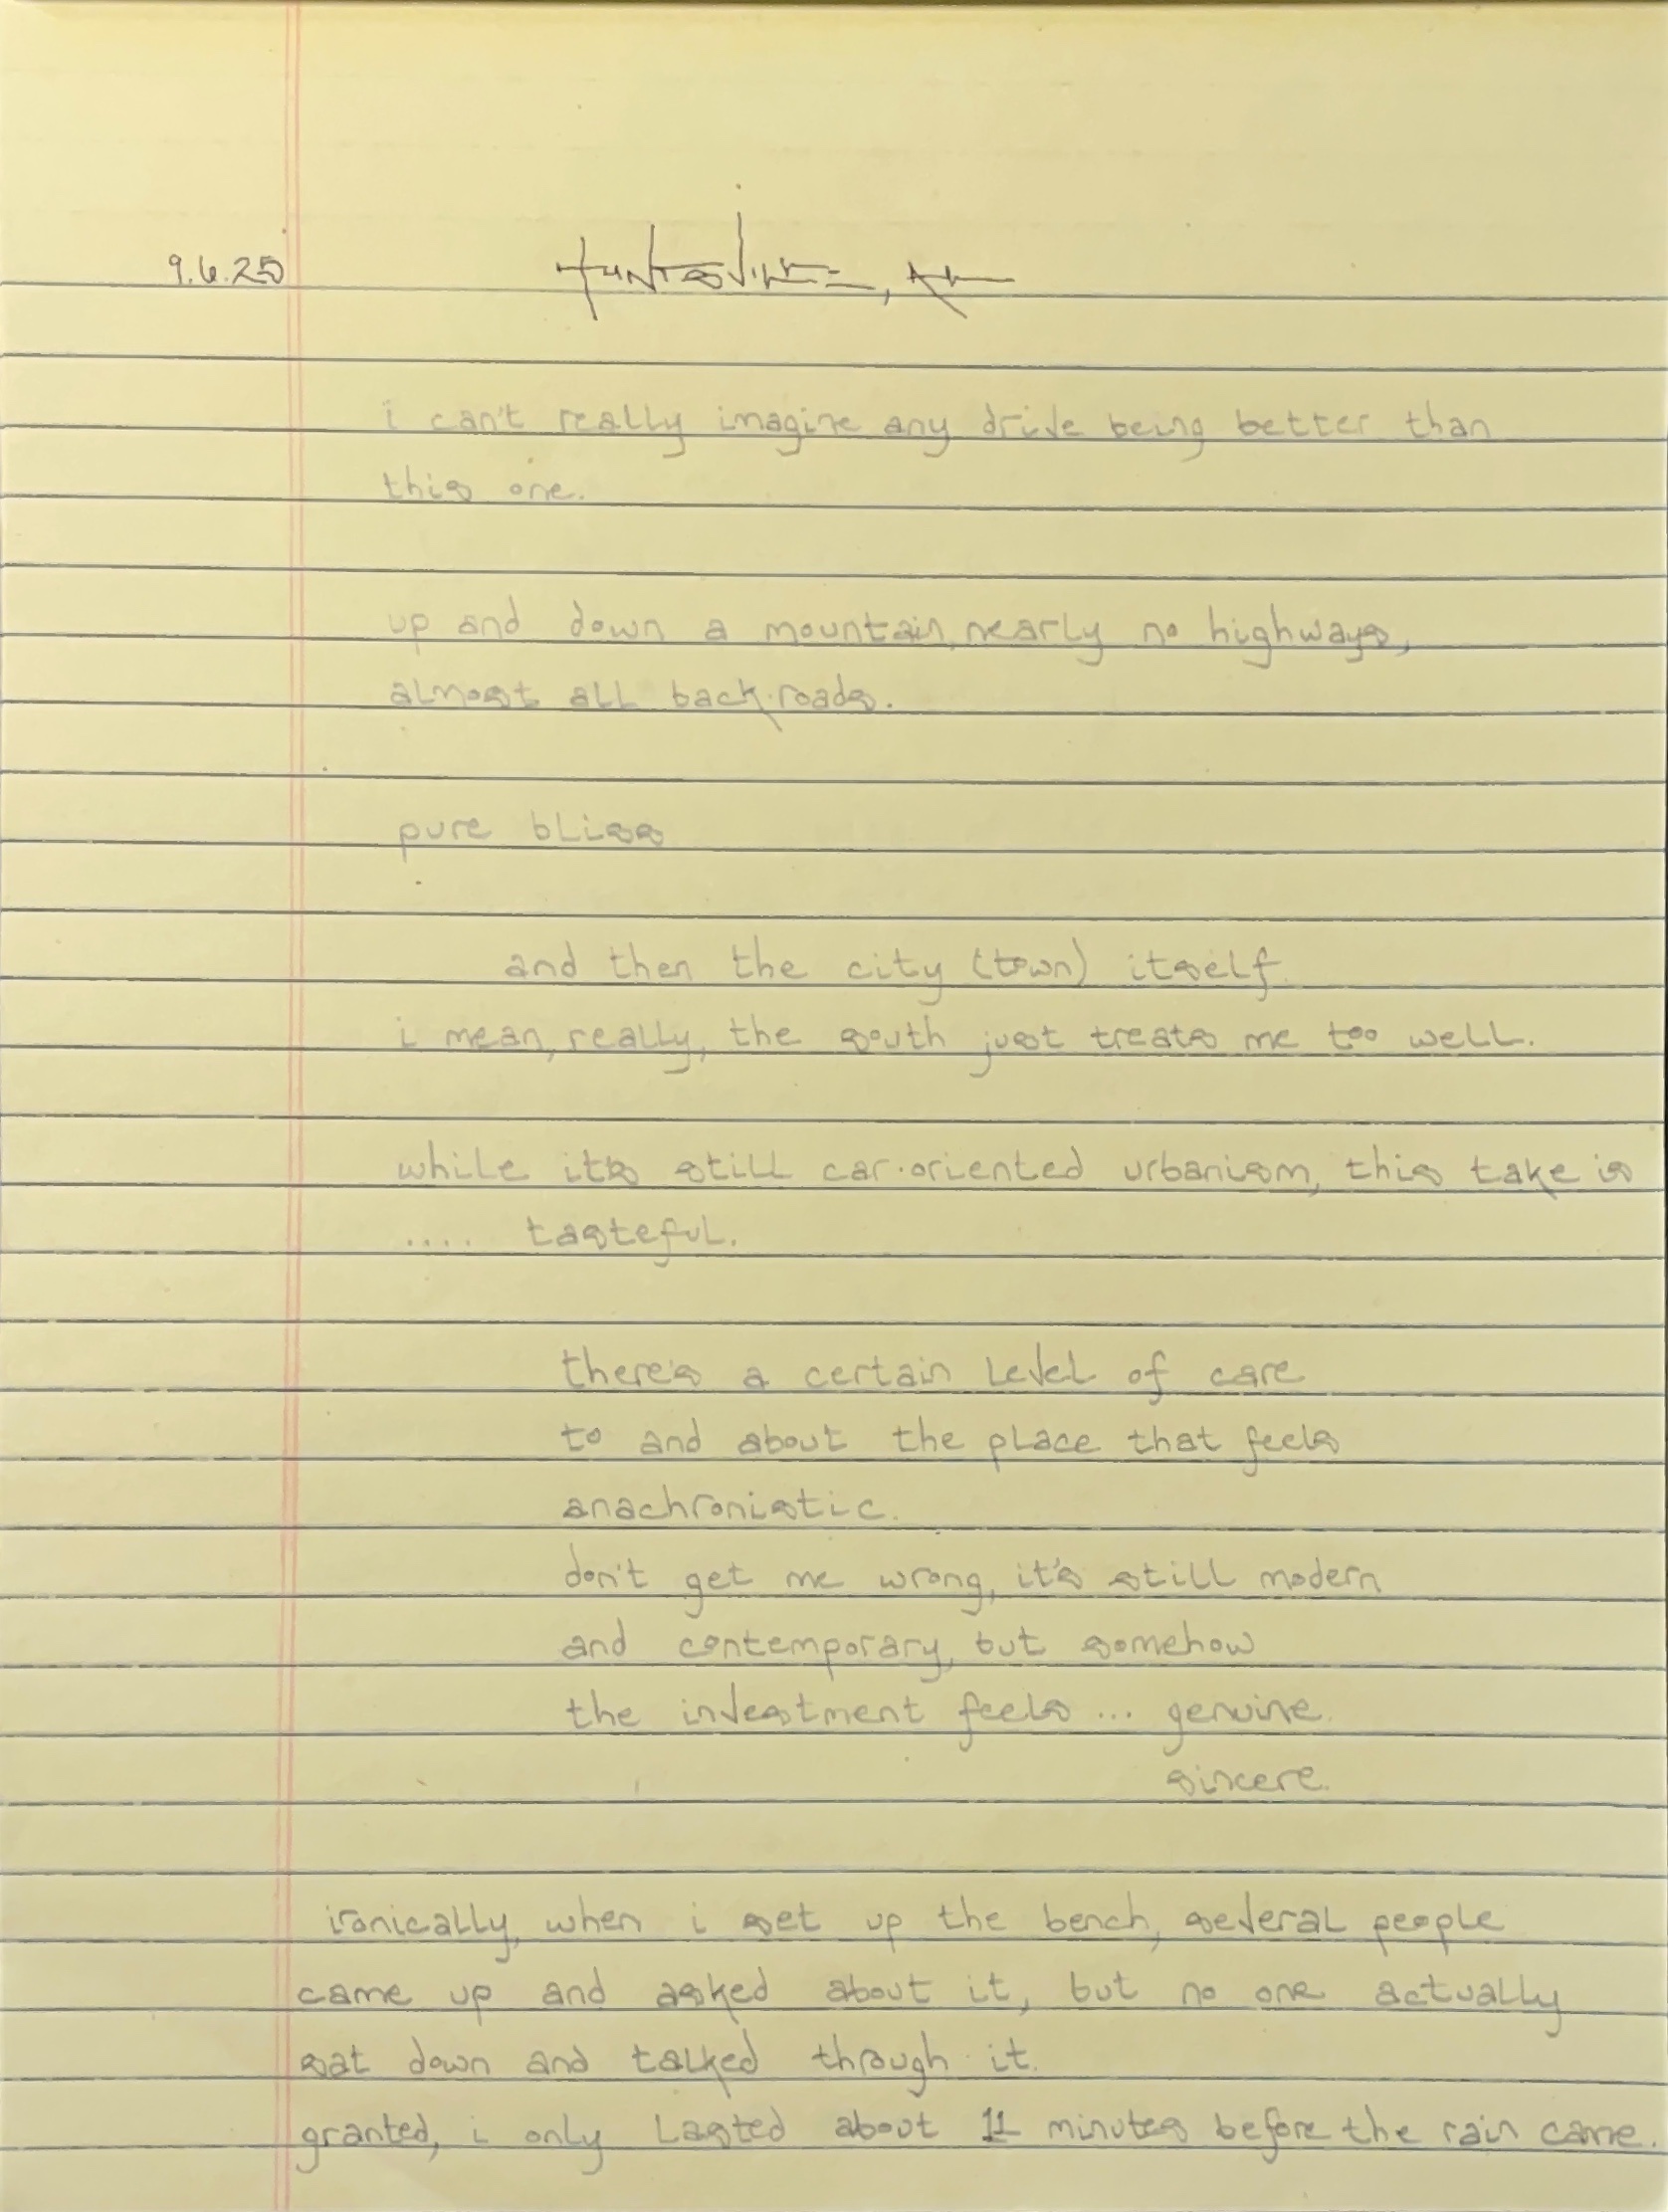 9.6.25 Huntsville, AL
i can't really imagine any drive being better than
this one.
up and down a mountain, nearly no highways,
almost all back·roads.
pure bliss
and then the city (town) itself.
i mean, really, the south just treats me too well.
while its still car·oriented urbanism, this take is
.... tasteful.
there's a certain level of care
to and about the place that feels
anachronistic.
don't get me wrong, it's still modern
and contemporary, but somehow
the investment feels ... genuine.
sincere.
ironically, when i set up the bench, several people
came up and asked about it, but no one actually
sat down and talked through it.
granted, i only lasted about 11 minutes before the rain came.